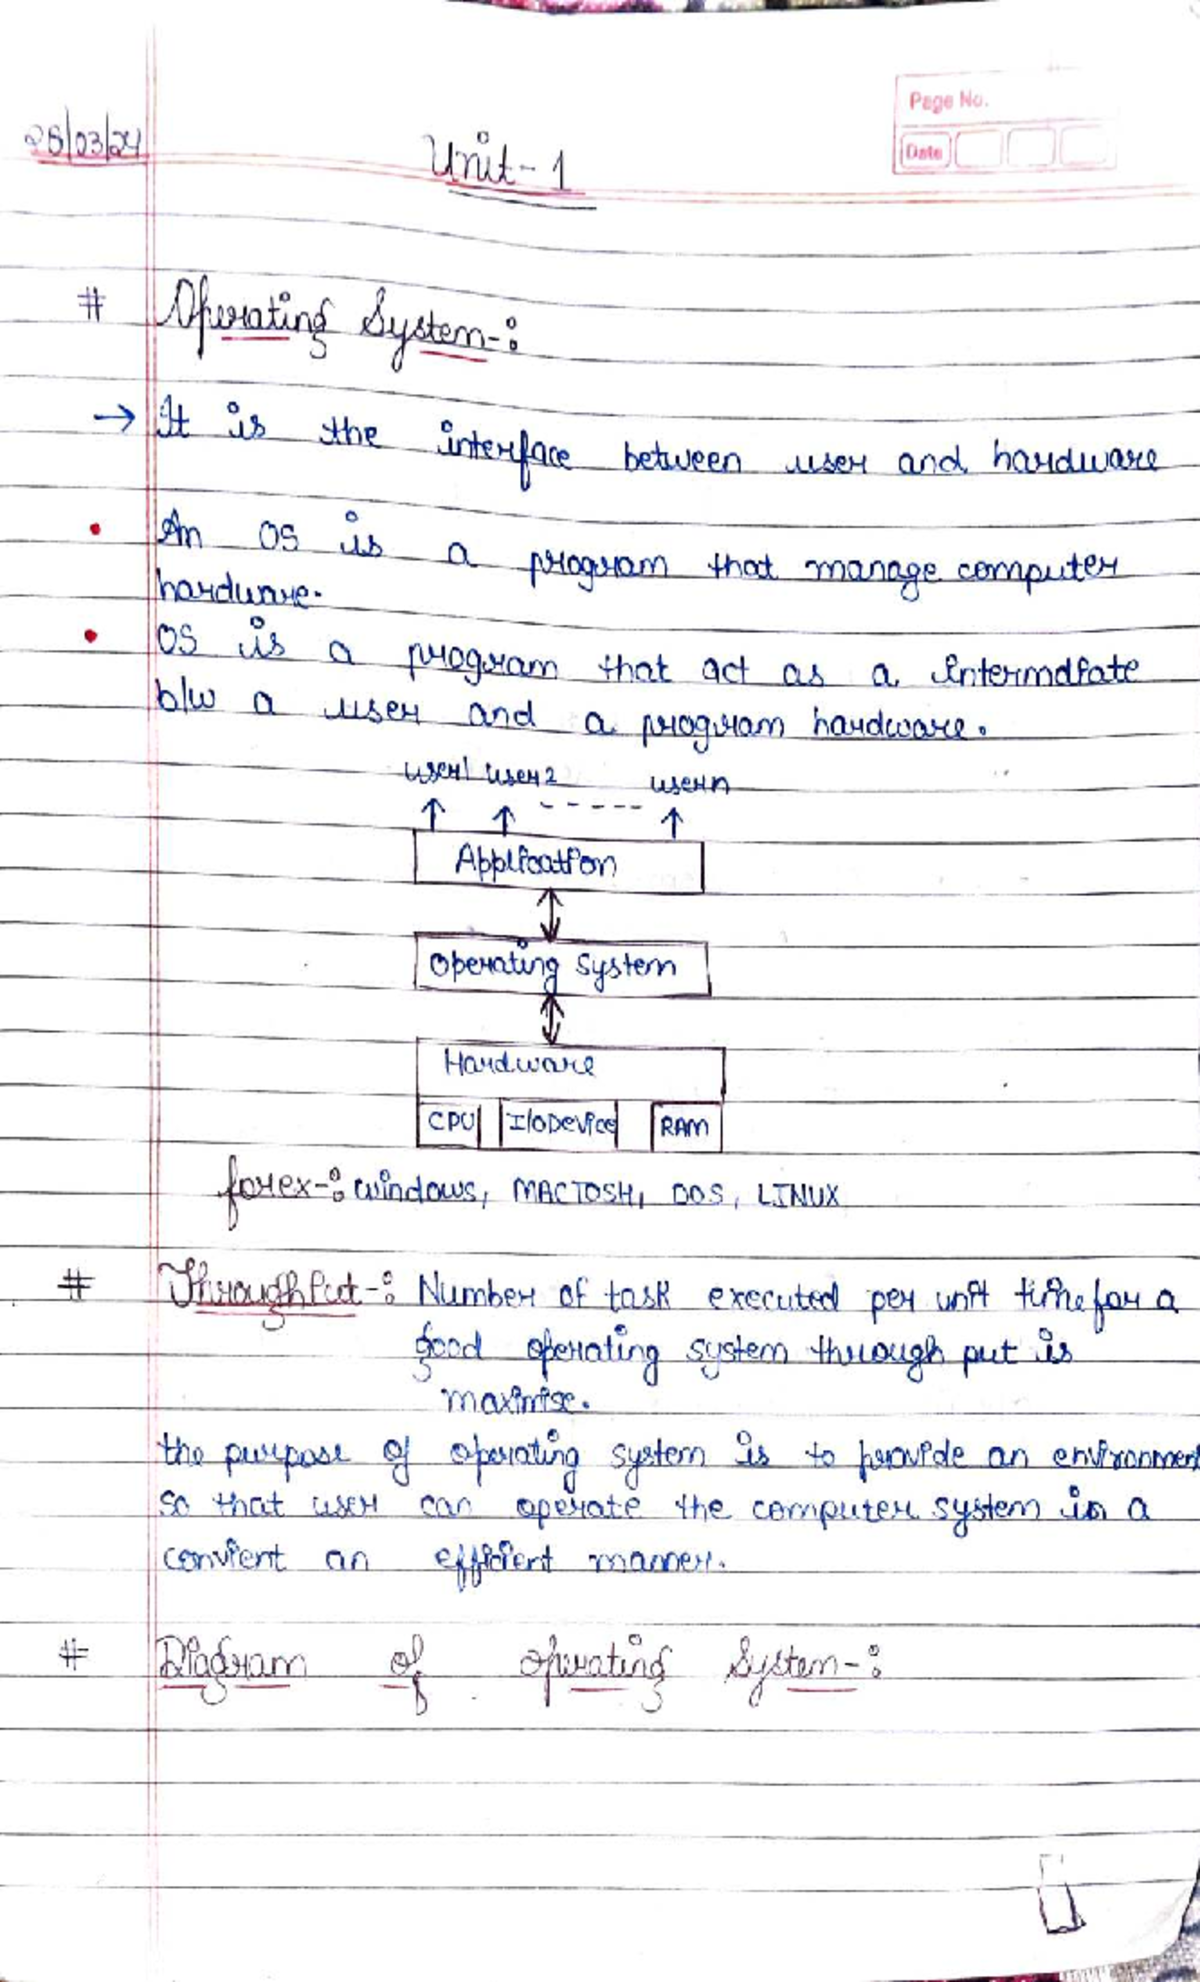 Page No.
Date
28/03/24
Unit - 1
# Operating System-:
→ It is the interface between user and hardware
• An OS is a program that manage computer
hardware.
• OS is a program that act as a intermdiate
b/w a user and a program hardware.
user1 user2 ----- usern
Application
Operating System
Hardware
CPU I/O Device RAM
forex-: windows, MACTOSH, DOS, LINUX
# Throughput-: Number of task executed per unit time for a
good operating system through put is
maximise.
the purpose of operating system is to provide an environment
so that user can operate the computer system in a
convient an efficient manner.
# Diagram of operating System-: